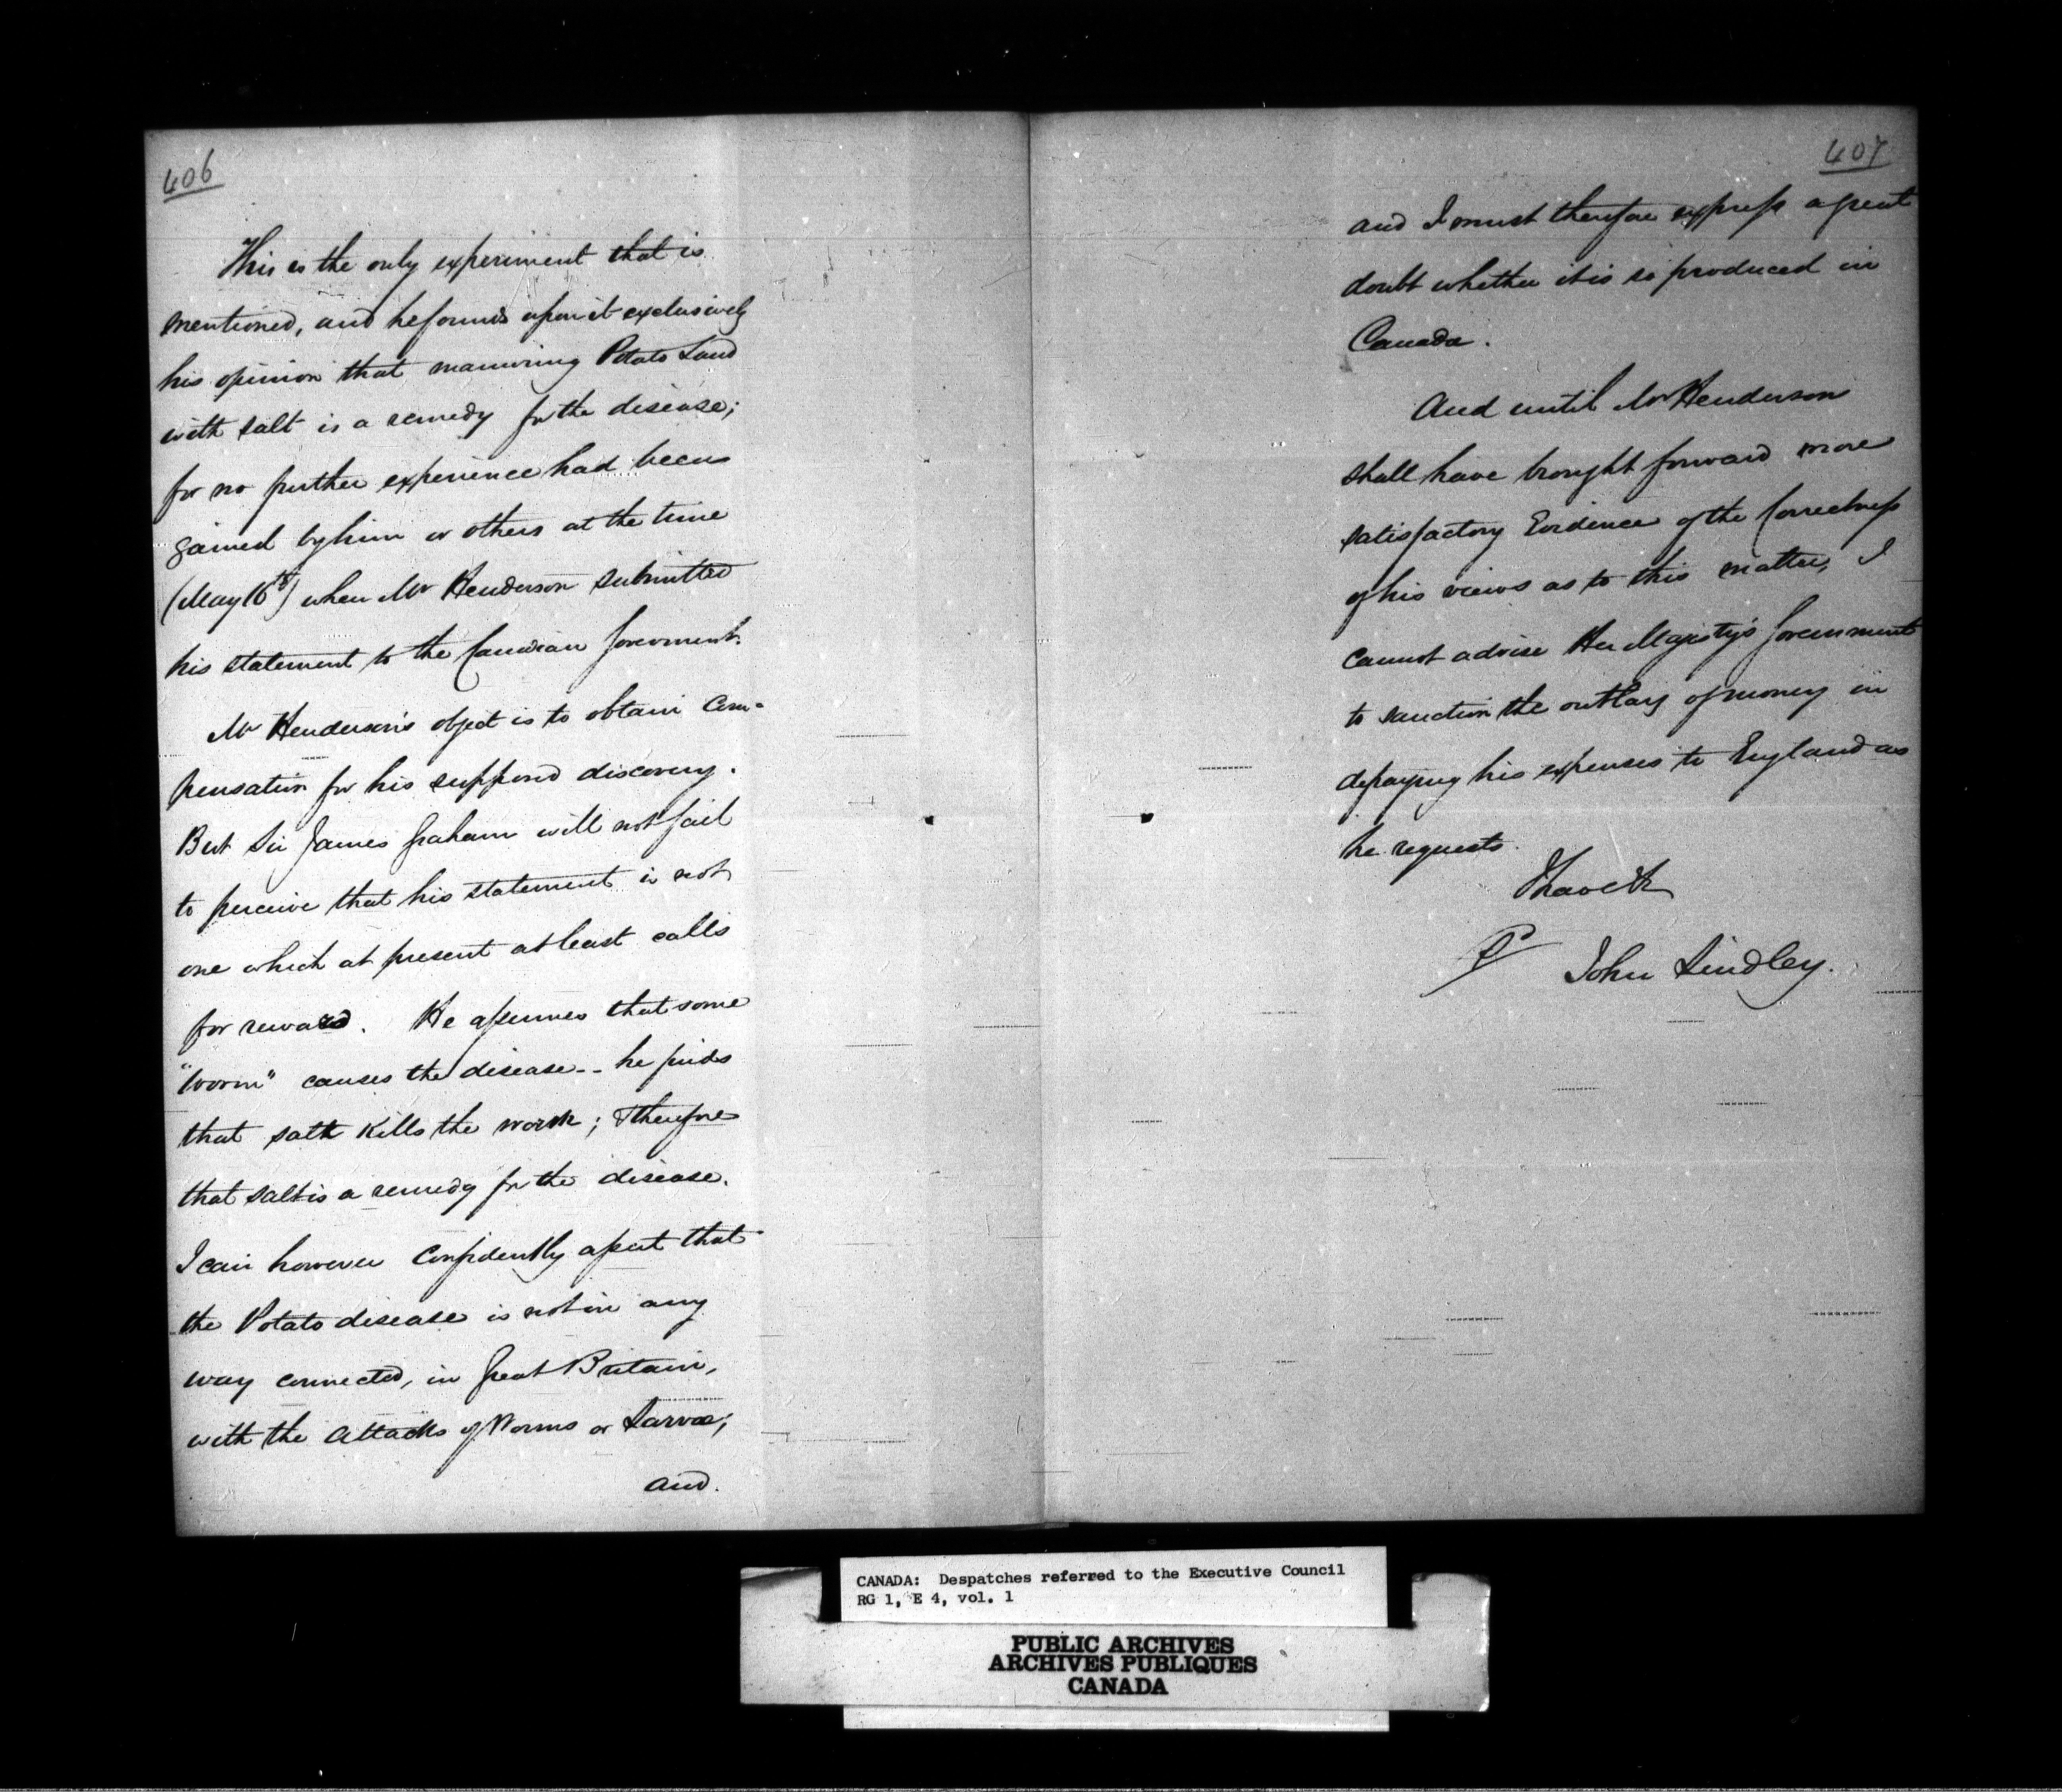 406
This is the only experiment that is
mentioned, and he founds upon it exclusively
his opinion that manuring Potato Land
with salt is a remedy for the disease;
for no further experience had been
gained by him or others at the time
(May 16th) when Mr Henderson submitted
his statement to the Canadian Government.
Mr Henderson's object is to obtain Com-
pensation for his supposed discovery.
But Sir James Graham will not fail
to perceive that his statement is not
one which at present at least calls
for reward. He assumes that some
"Worm" causes the disease -- he finds
that salt kills the worm; & therefore
that salt is a remedy for the disease.
I can however Confidently assert that
the Potato disease is not in any
way connected, in Great Britain,
with the attacks of Worms or Larvae;
and.
407
and I must therefore express a great
doubt whether it is so produced in
Canada.
And until Mr Henderson
shall have brought forward more
satisfactory Evidence of the Correctness
of his views as to this matter, I
cannot advise Her Majesty's Government
to sanction the outlay of money in
defraying his expenses to England as
he requests.
I have &c
John Lindley.
CANADA: Despatches referred to the Executive Council
RG 1, E 4, vol. 1
PUBLIC ARCHIVES
ARCHIVES PUBLIQUES
CANADA